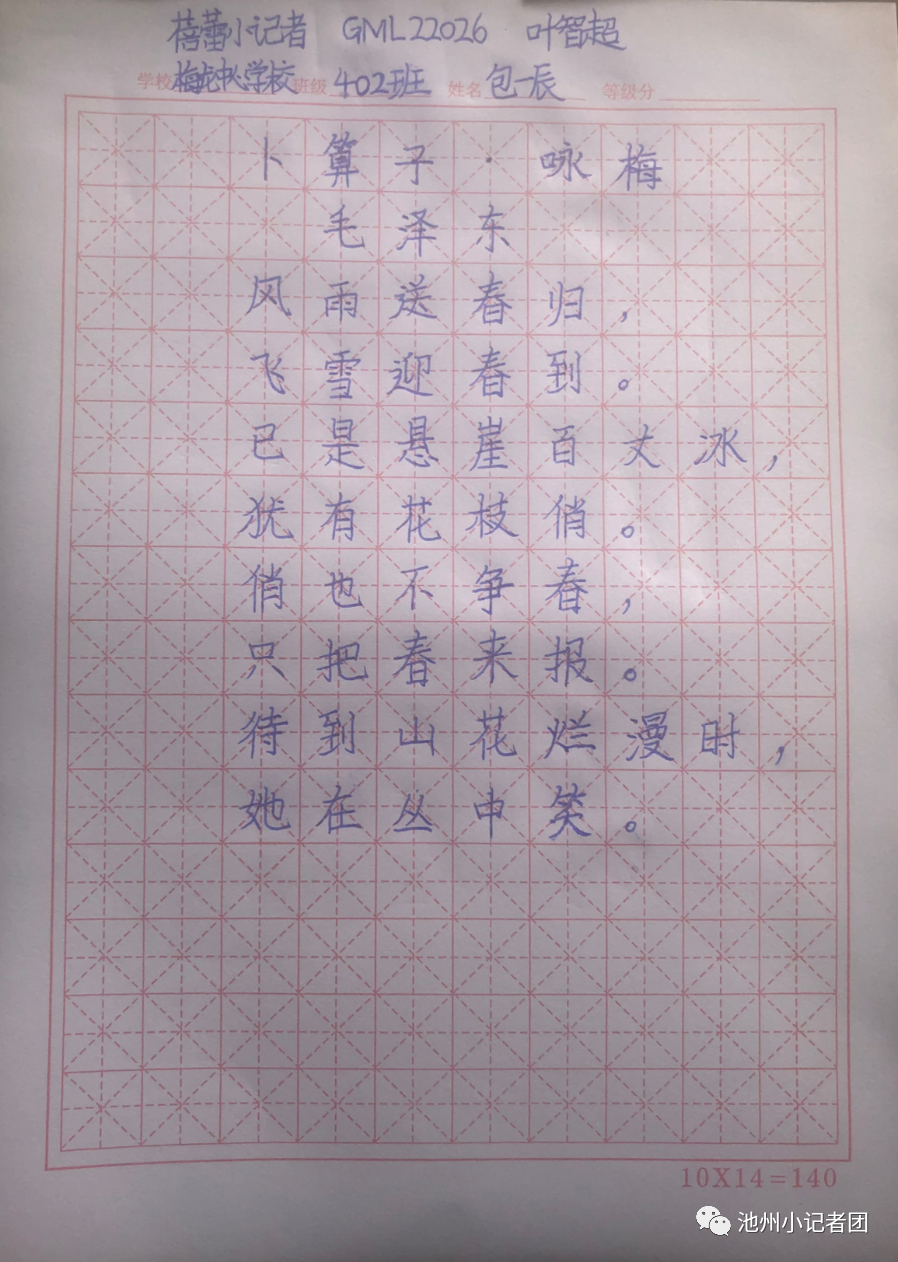 蓓蕾小记者 GML22026 叶智超
学校 梅龙中心学校 班级 402班 姓名 包一辰 等级分
卜算子·咏梅
毛泽东
风雨送春归，
飞雪迎春到。
已是悬崖百丈冰，
犹有花枝俏。
俏也不争春，
只把春来报。
待到山花烂漫时，
她在丛中笑。
10X14=140
池州小记者团